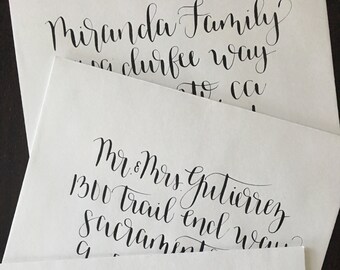 Miranda Family
durfee way
ca
Mr. & Mrs. Gutierrez
1300 trail end way
sacramento